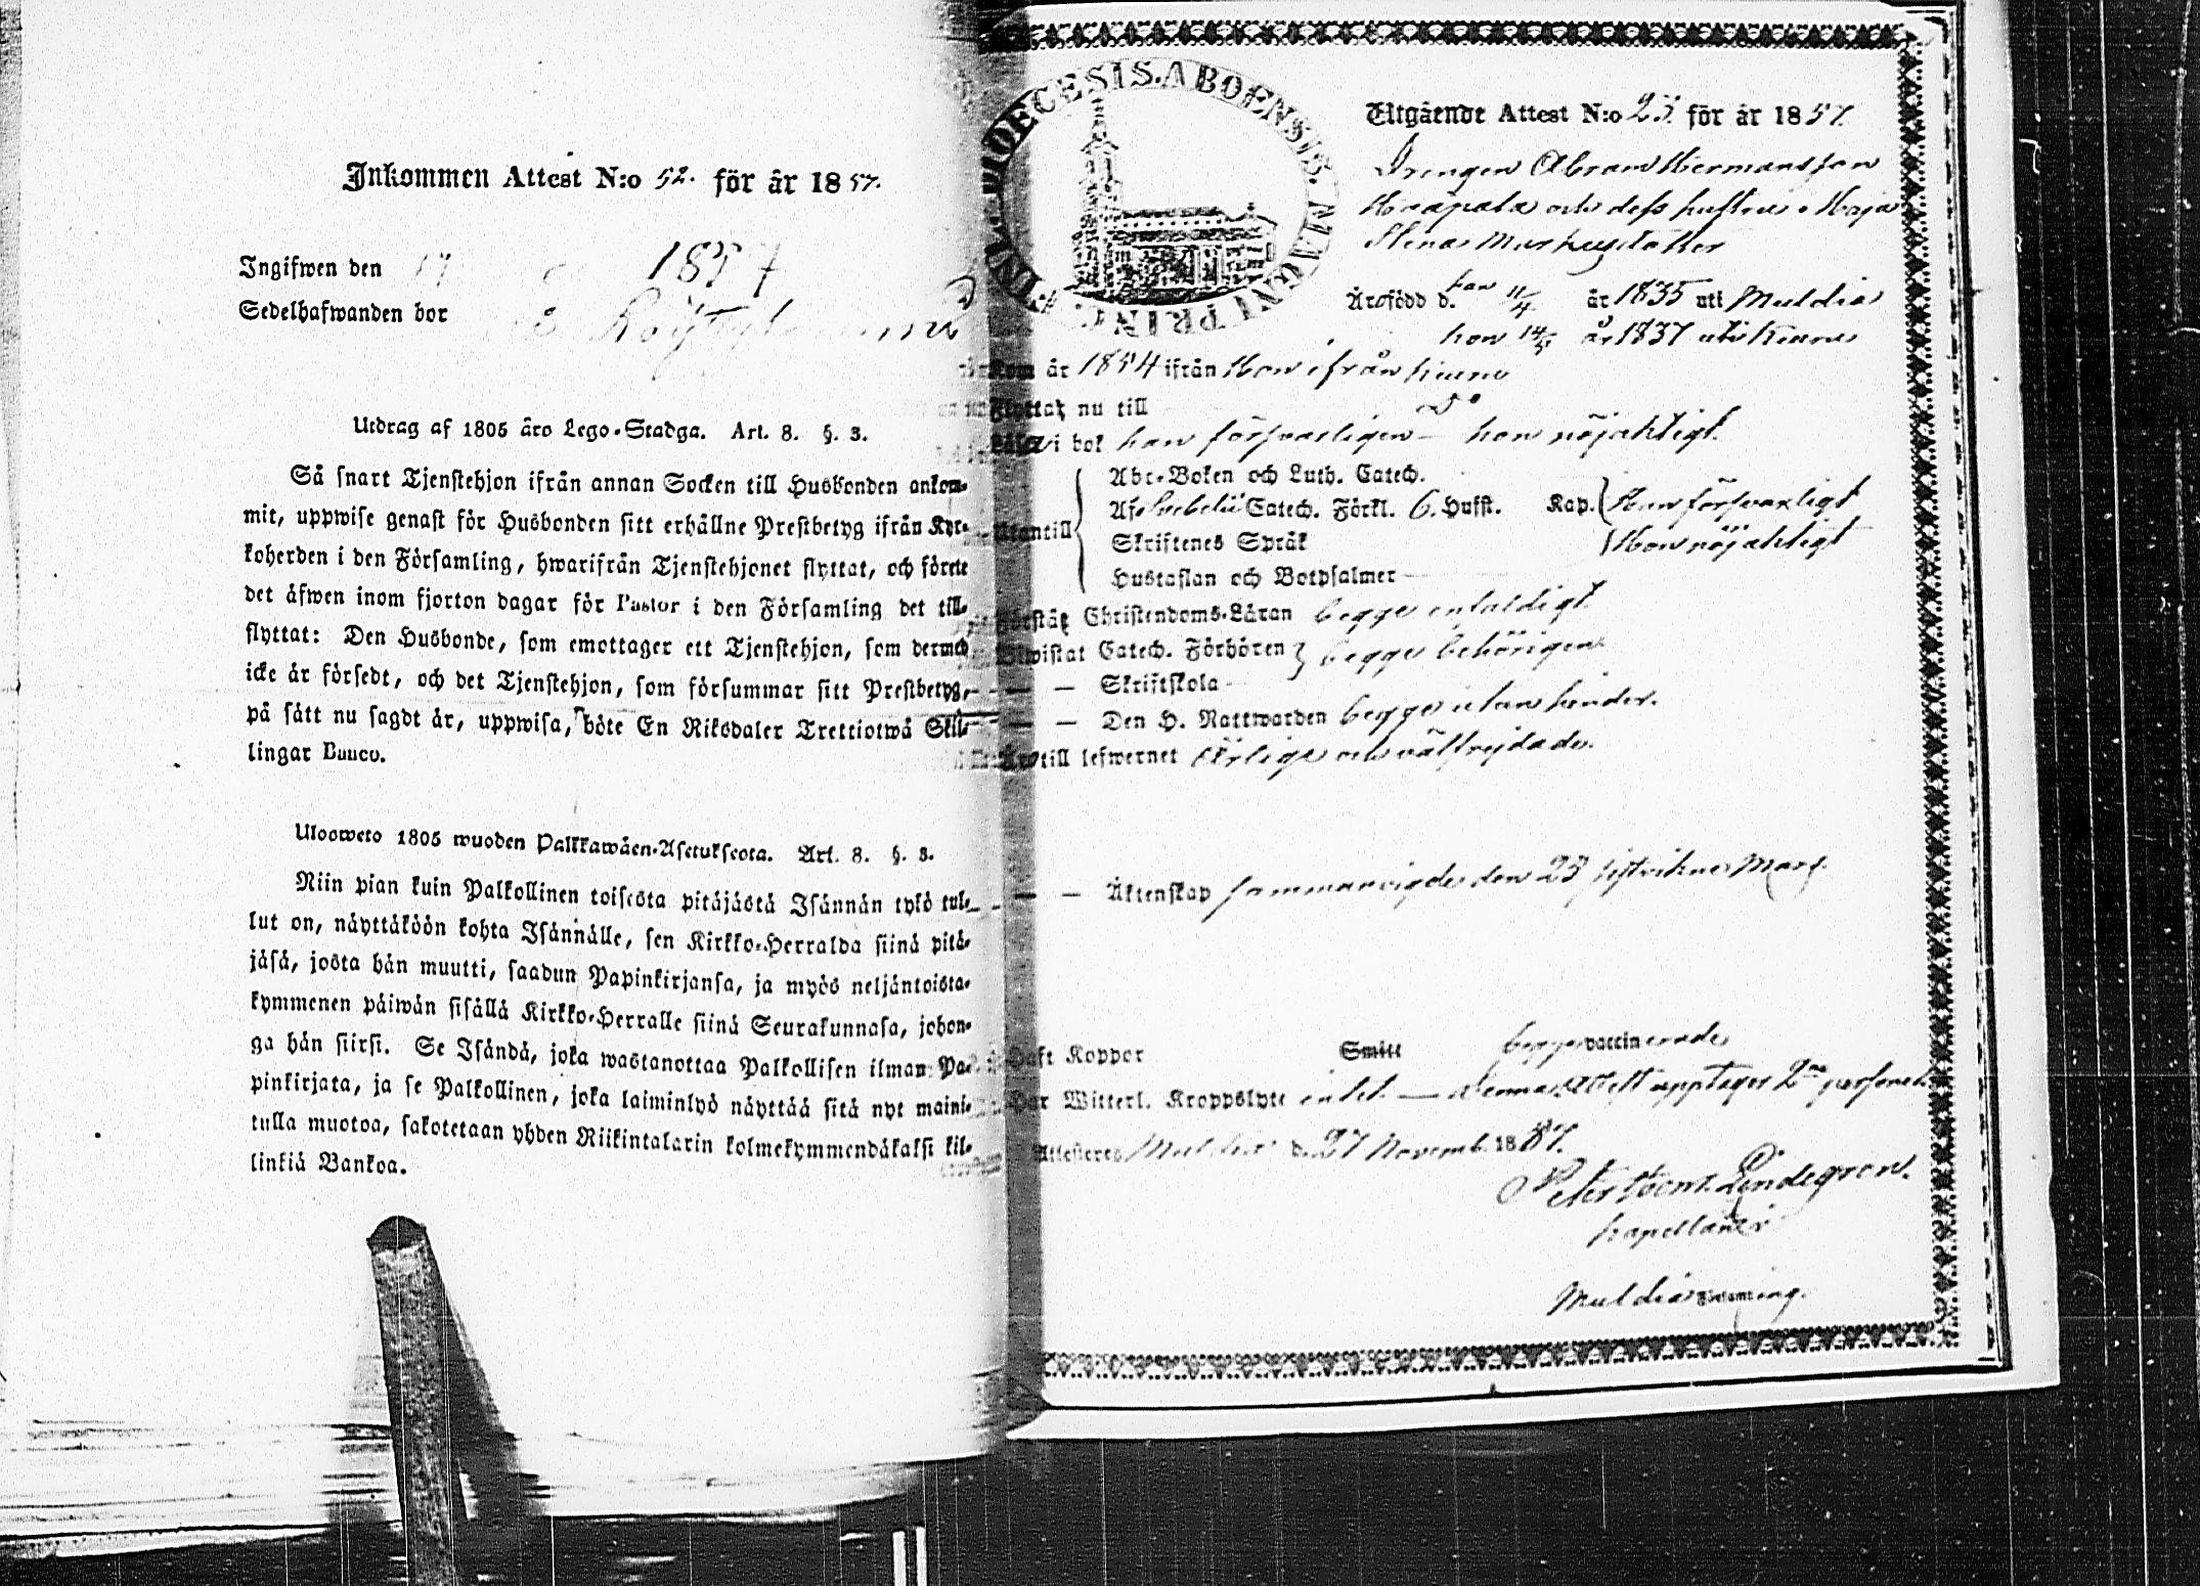 Inkommen Attest N:o 52. för år 1857.
Ingifwen den 17 1857
Sedelhafwanden bor
Utdrag af 1805 års Lego-Stadga. Art. 8. §. 3.
Så snart Tjenstehjon ifrån annan Socken till Husbonden ankom-
mit, uppwise genast för Husbonden sitt erhållne Prestbetyg ifrån Kyr-
koherden i den Församling, hwarifrån Tjenstehjonet flyttat, och förete
det äfwen inom fjorton dagar för Pastor i den Församling det till-
flyttat: Den Husbonde, som emottager ett Tjenstehjon, som dermed
icke är försedt, och det Tjenstehjon, som försummar sitt Prestbetyg,
på sätt nu sagdt är, uppwisa, böte En Riksdaler Trettiotwå Skil-
lingar Banco.
Uloosweto 1805 wuoden Palkkawäen-Asetuksesta. Art. 8. §. 3.
Niin pian kuin Palkollinen toisesta pitäjästä Isännän tykö tul-
lut on, näyttäköön kohta Isännälle, sen Kirkko-Herralda siinä pitä-
jäsä, josta hän muutti, saadun Papinkirjansa, ja myös neljäntoista-
kymmenen päiwän sisällä Kirkko-Herralle siinä Seurakunnasa, johon-
ga hän siirsi. Se Isändä, joka wastanottaa Palkollisen ilman Pa-
pinkirjata, ja se Palkollinen, joka laiminlyö näyttää sitä nyt maini-
tulla muotoa, sakotetaan yhden Riikintalarin kolmekymmendäkaksi kil-
linkiä Bankoa.
DIOECESIS. ABOENSIS. MAGNI PRINC.
Utgående Attest N:o 23. för år 1857.
Drengen Abram Hermansson
Haapala och dess hustru Maja
Stina Markusdotter
Är född d. han 11/4 år 1835 uti Muldia
hon 14/5 år 1837 uti Keuru
kom år 1854 ifrån Hon ifrån Keuru
Flyttat nu till do
i bok han försvarligen — hon nöjaktigt.
Utantill
Abc-Boken och Luth. Catech.
Af Svebelii Catech. Förkl. 6. Hufst. Kap. Han försvarligt
Skriftenes Språk Hon nöjaktigt
Hustaflan och Botpsalmer
Förstår Christendoms-Läran begge enfaldigt
Biwistat Catech. Förhören begge behörigen
— — Skriftskola
— — Den H. Nattwarden begge utan hinder.
till lefwernet ärlige och välfrejdade.
— — Äktenskap sammanvigde den 23 sistvikne Mars.
Haft Koppor Smitt begge vaccinerade
Har Witterl. Kroppslyte intet. — Denna Attest upptager 2ne personer
Attesteres Muldia d. 27 Novemb. 1857.
Lindegren.
kapellan i
Muldia Församling.